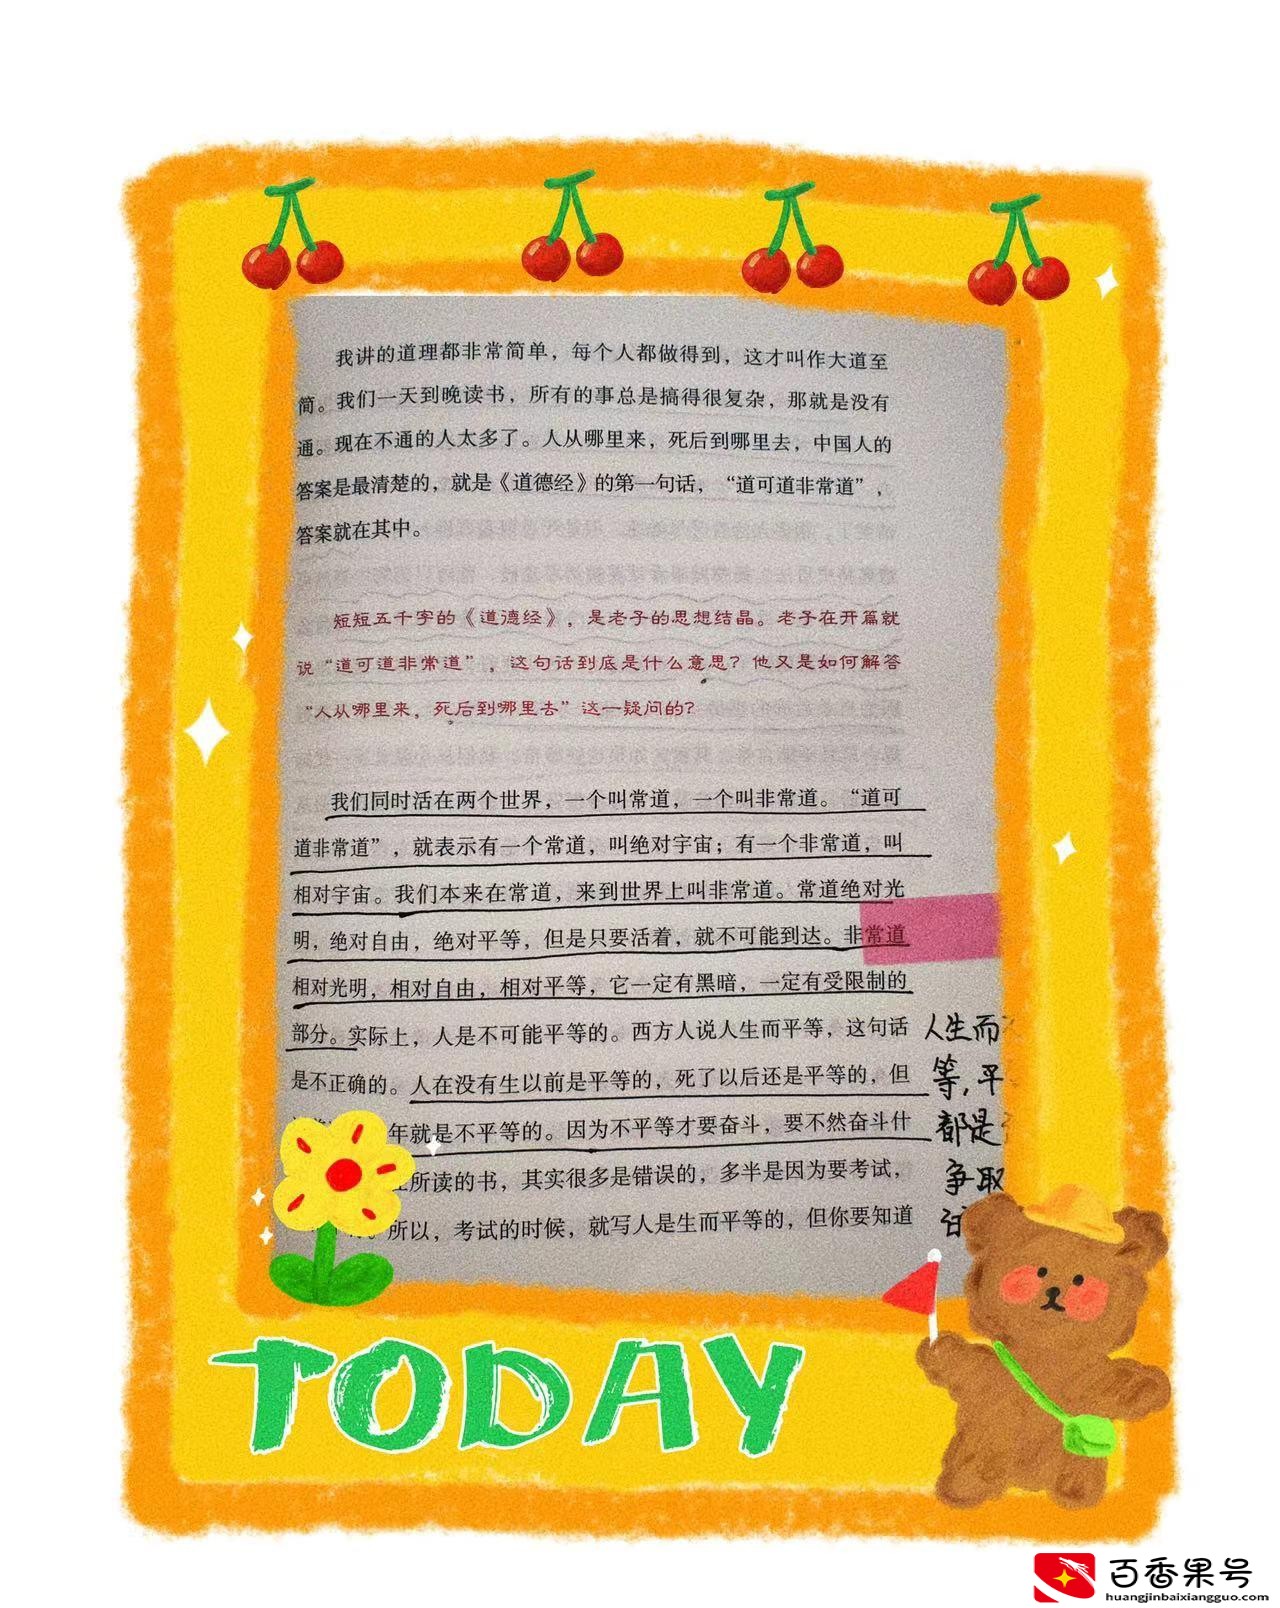 我讲的道理都非常简单，每个人都做得到，这才叫作大道至
简。我们一天到晚读书，所有的事总是搞得很复杂，那就是没有
通。现在不通的人太多了。人从哪里来，死后到哪里去，中国人的
答案是最清楚的，就是《道德经》的第一句话，“道可道非常道”，
答案就在其中。
短短五千字的《道德经》，是老子的思想结晶。老子在开篇就
说“道可道非常道”，这句话到底是什么意思？他又是如何解答
“人从哪里来，死后到哪里去”这一疑问的？
我们同时活在两个世界，一个叫常道，一个叫非常道。“道可
道非常道”，就表示有一个常道，叫绝对宇宙；有一个非常道，叫
相对宇宙。我们本来在常道，来到世界上叫非常道。常道绝对光
明，绝对自由，绝对平等，但是只要活着，就不可能到达。非常道
相对光明，相对自由，相对平等，它一定有黑暗，一定有受限制的
部分。实际上，人是不可能平等的。西方人说人生而平等，这句话
是不正确的。人在没有生以前是平等的，死了以后还是平等的，但
年就是不平等的。因为不平等才要奋斗，要不然奋斗什
所读的书，其实很多是错误的，多半是因为要考试，
所以，考试的时候，就写人是生而平等的，但你要知道
人生而
等，平
都是
争取
TODAY
百香果号
huangjinbaixiangguo.com